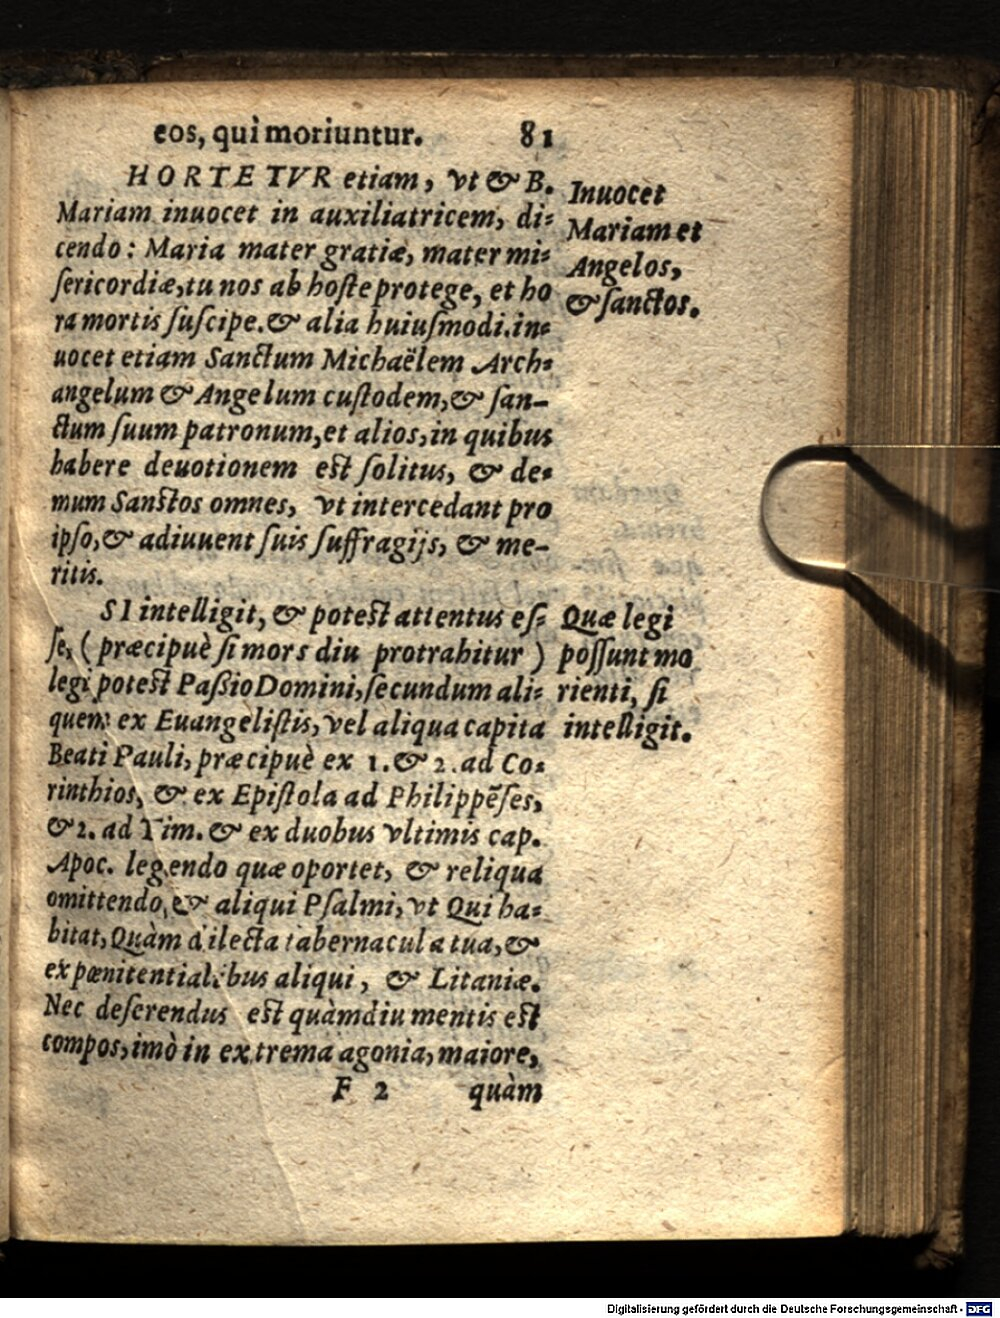 eos, qui moriuntur. 81
HORTETVR etiam, vt & B.
Mariam inuocet in auxiliatricem, di-
cendo: Maria mater gratiæ, mater mi-
ſericordiæ, tu nos ab hoſte protege, et ho
ra mortis ſuſcipe. & alia huiuſmodi. in-
uocet etiam Sanctum Michaëlem Arch-
angelum & Angelum cuſtodem, & ſan-
ctum ſuum patronum, et alios, in quibus
habere deuotionem eſt ſolitus, & de-
mum Sanctos omnes, vt intercedant pro
ipſo, & adiuuent ſuis ſuffragijs, & me-
ritis.
Inuocet
Mariam et
Angelos,
& ſanctos.
SI intelligit, & poteſt attentus eſ-
ſe, (præcipuè ſi mors diu protrahitur)
legi poteſt Paßio Domini, ſecundum ali-
quem ex Euangeliſtis, vel aliqua capita
Beati Pauli, præcipuè ex 1. & 2. ad Co-
rinthios, & ex Epiſtola ad Philippēſes,
& 2. ad Tim. & ex duobus vltimis cap.
Apoc. legendo quæ oportet, & reliqua
omittendo, & aliqui Pſalmi, vt Qui ha-
bitat, Quàm dilecta tabernacula tua, &
ex pœnitentialibus aliqui, & Litaniæ.
Nec deſerendus eſt quàmdiu mentis eſt
compos, imò in extrema agonia, maiore,
Quæ legi
poſſunt mo
rienti, ſi
intelligit.
F 2 quàm
Digitalisierung gefördert durch die Deutsche Forschungsgemeinschaft - DFG